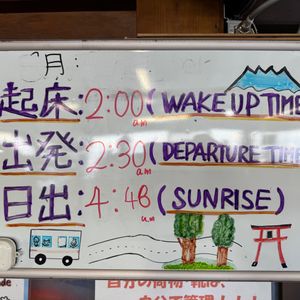 月:
起床:2:00am (WAKE UP TIME
出発:2:30am (DEPARTURE TIME
日出:4:48am (SUNRISE)
自分の荷物 靴は、